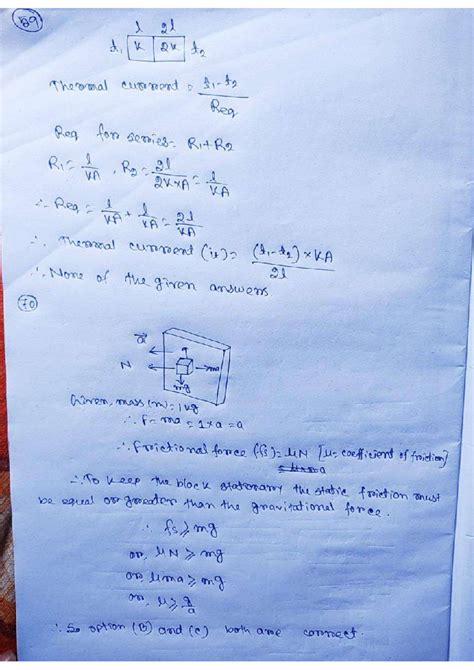 69
l 2l
t₁ K 2K t₂
Thermal current = t₁-t₂ / Req
Req for series = R₁+R₂
R₁ = l/KA , R₂ = 2l/2K×A = l/KA
∴ Req = l/KA + l/KA = 2l/KA
∴ Thermal current (is) = (t₁-t₂)×KA / 2l
∴ None of the given answers
70
a⃗
N ma
mg
Given, mass (m) = 1kg
∴ F = ma = 1×a = a
∴ Frictional force (fs) = μN [μ = coefficient of friction]
∴ To keep the block stationary the static friction must
be equal or greater than the gravitational force.
∴ fs ⩾ mg
or, μN ⩾ mg
or, μma ⩾ mg
or, μ ⩾ g/a
∴ So option (B) and (C) both are correct.